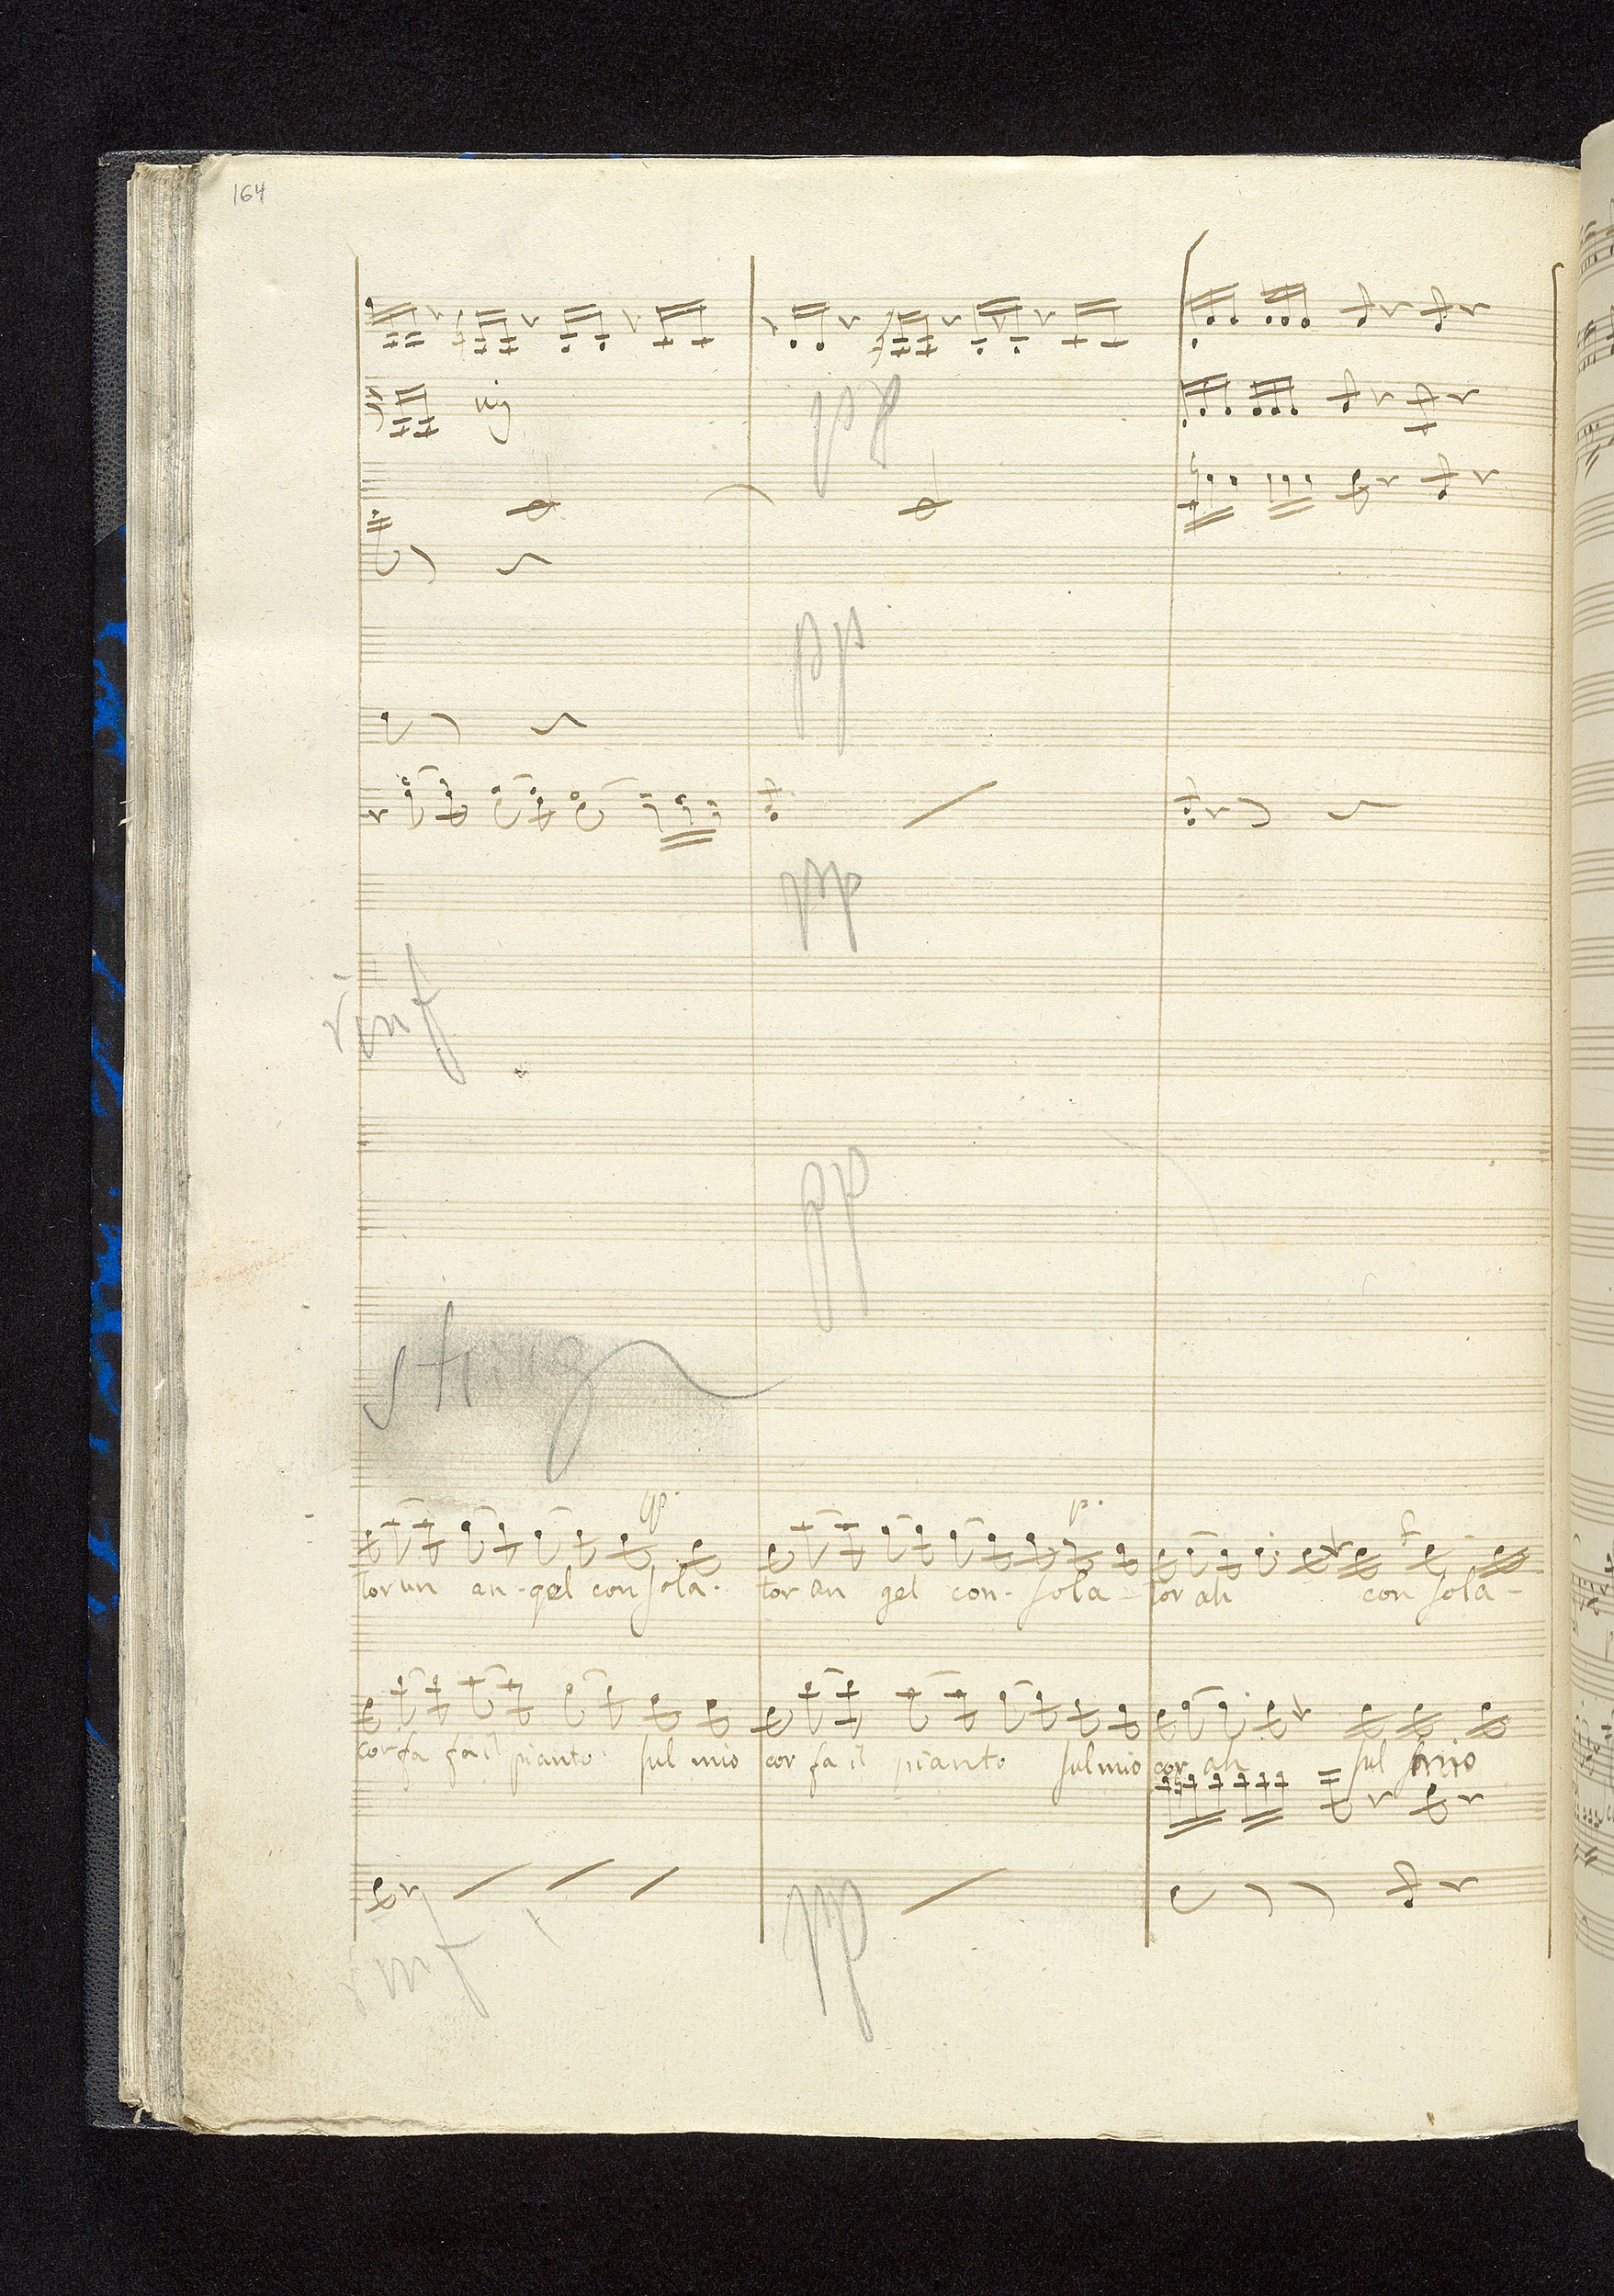 164
pp
pp
pp
rinf
pp
string
pp. p. f
tor un an-gel con sola- tor an gel con- sola- tor ah con sola-
cor fa fa il pianto sul mio cor fa il pianto sul mio cor ah sul mio
rinf pp